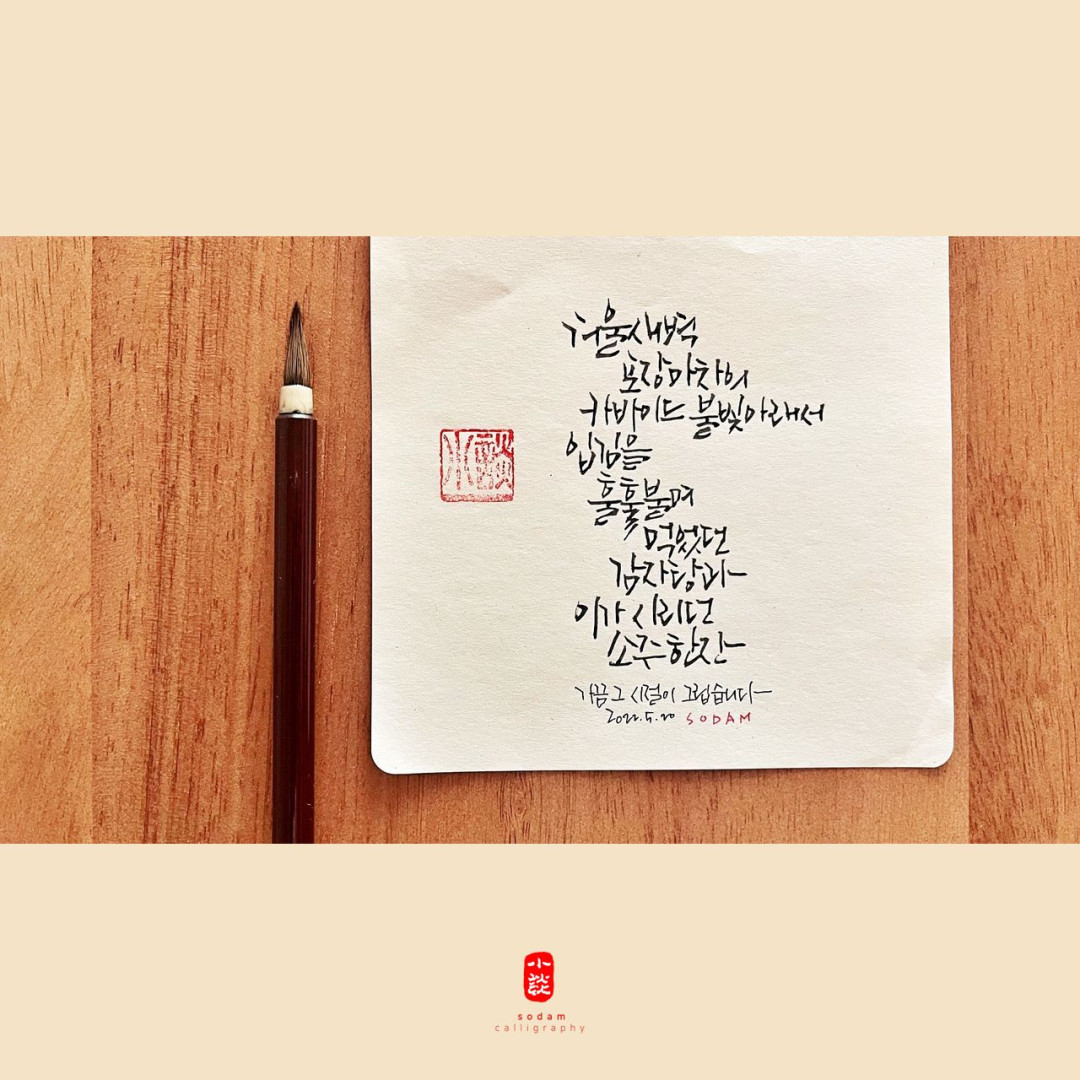 겨울새벽
포장마차의
카바이드 불빛아래서
입김을
훌훌불며
먹었던
감자탕과
이가 시리던
소주한잔
가끔 그 시절이 그립습니다
2022.5.20 SODAM
小談
sodam
calligraphy